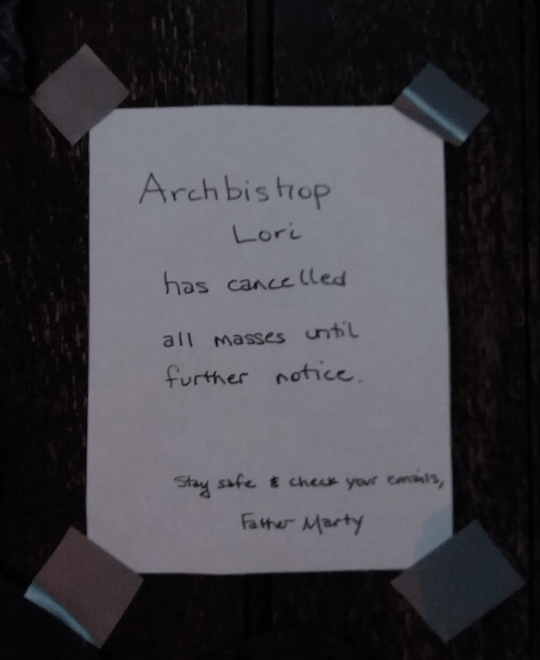 Archbishop
Lori
has cancelled
all masses until
further notice.
Stay safe & check your emails,
Father Marty